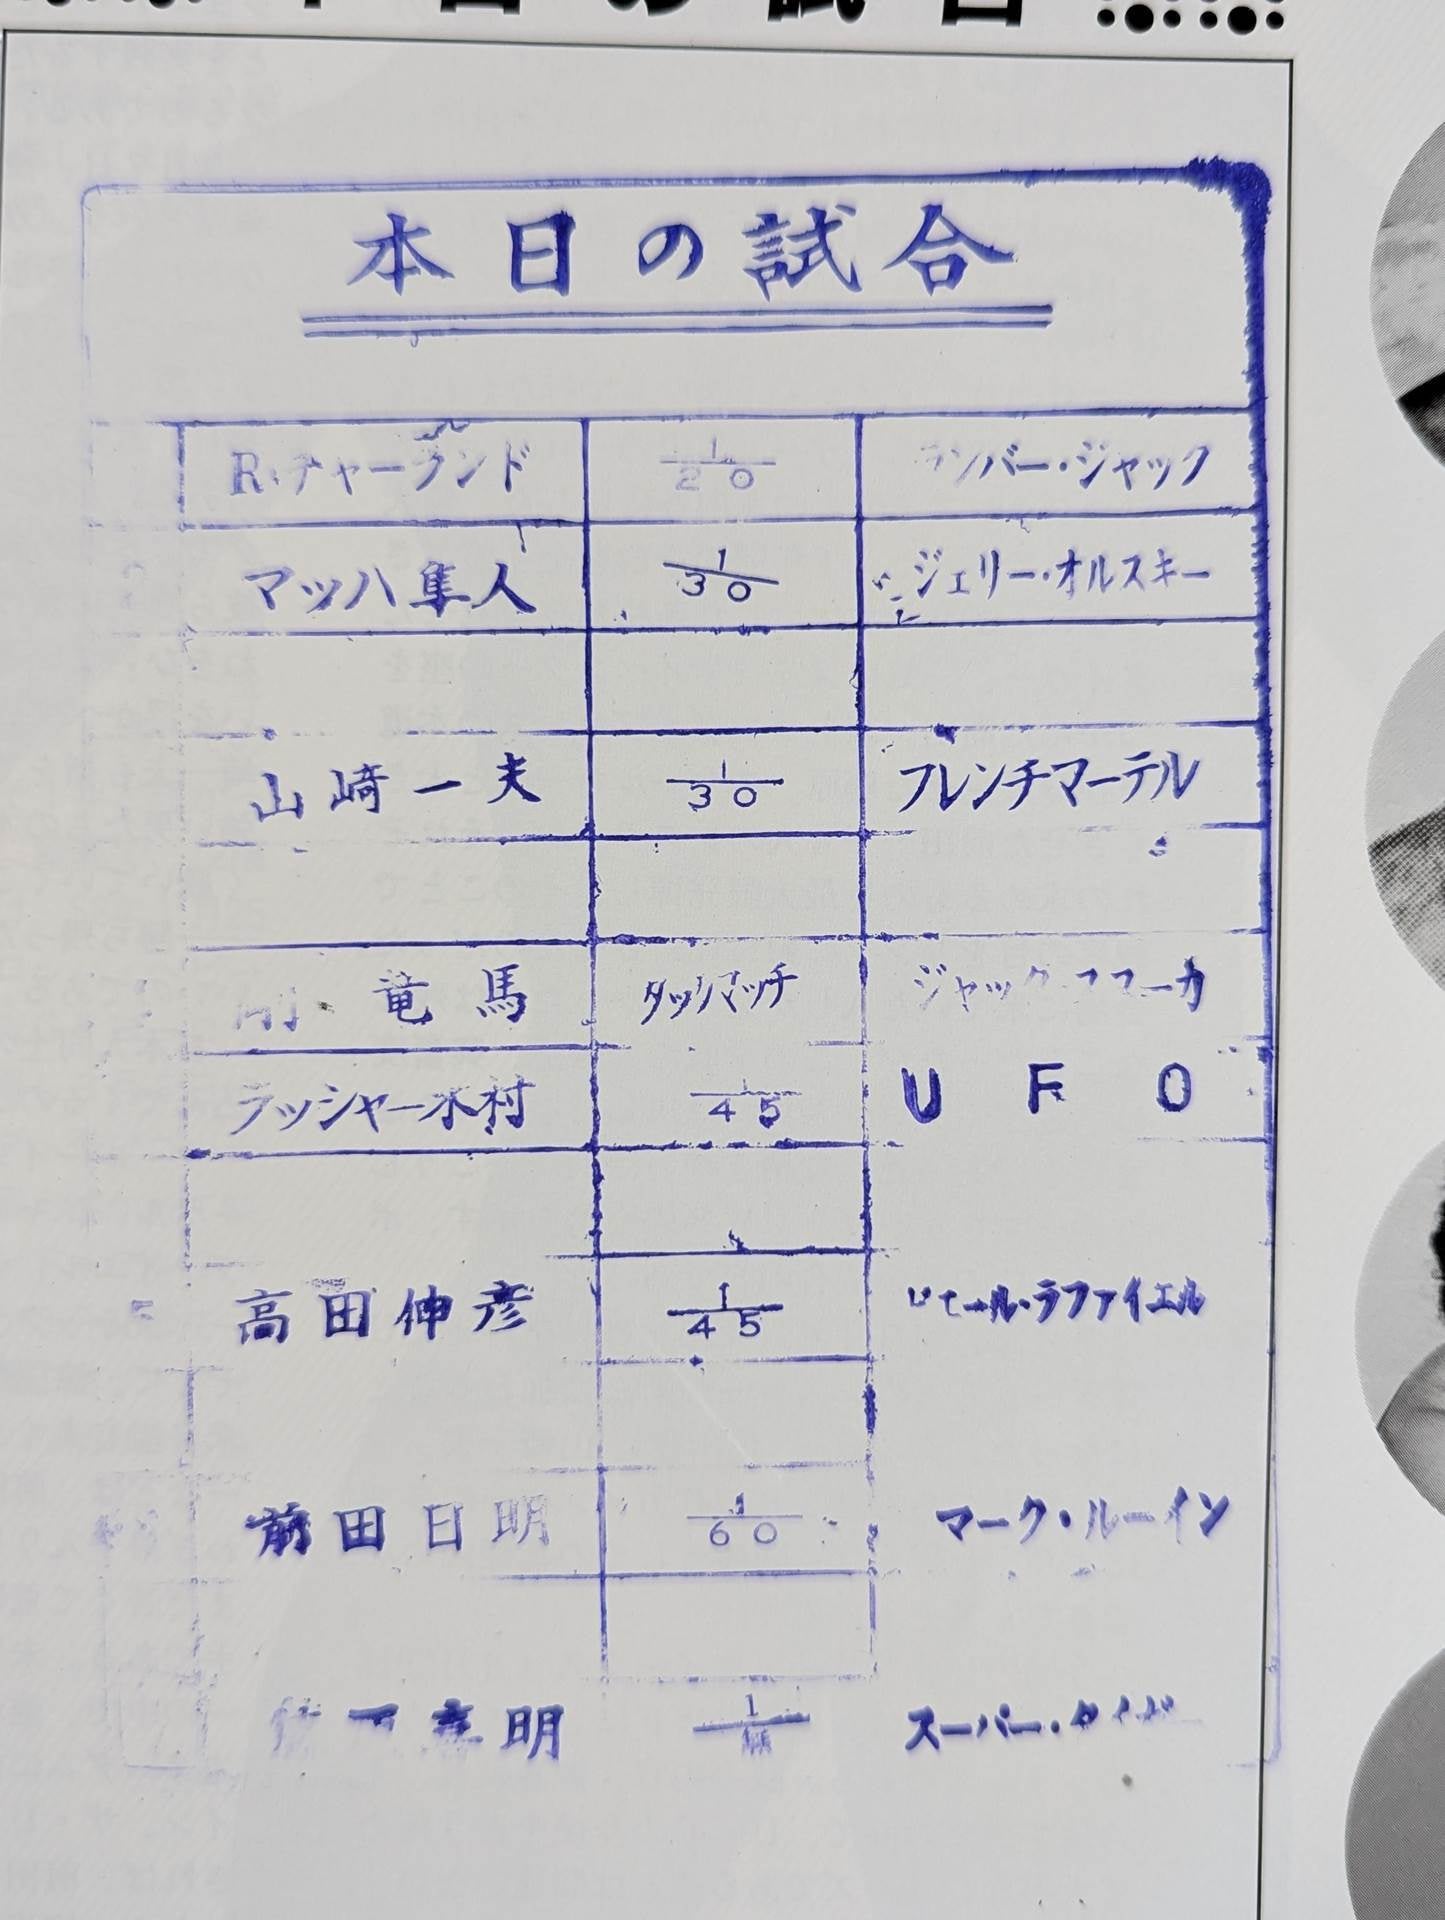 本日の試合
R.チャーランド 1/20 ランバー・ジャック
マッハ隼人 1/30 ジェリー・オルスキー
山崎一夫 1/30 フレンチマーテル
剛 竜馬 タッグマッチ ジャック
ラッシャー木村 1/45 UFO
高田伸彦 1/45 ピエール・ラファイエル
前田日明 1/60 マーク・ルーイン
明 1/無 スーパー・タイガー